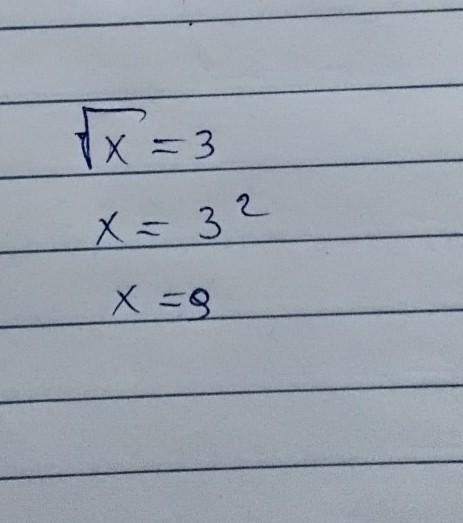 √x = 3
x = 3²
x = 9